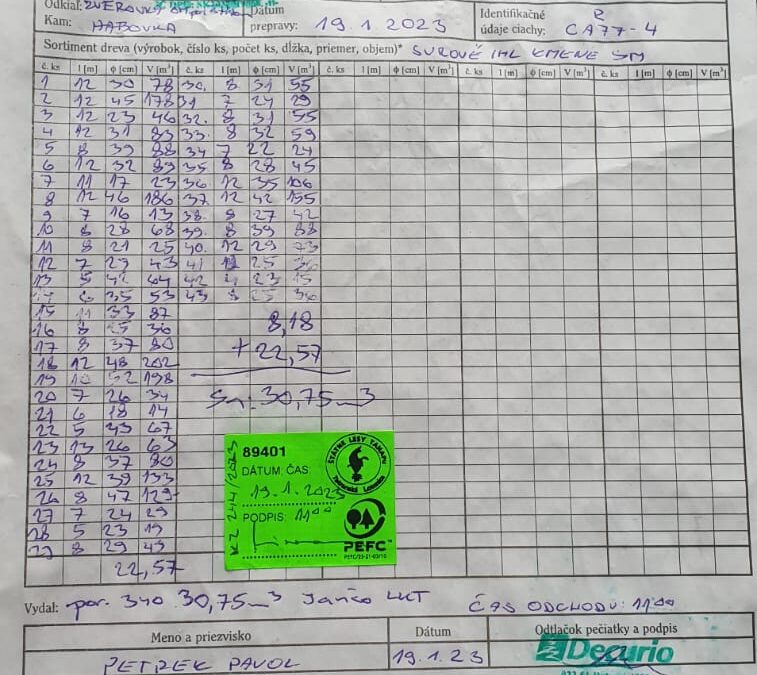 Odkiaľ: ZVEROVKA
Dátum prepravy: 19.1.2023
Kam: HABOVKA
Identifikačné údaje ciachy: CA77-4
Sortiment dreva (výrobok, číslo ks, počet ks, dĺžka, priemer, objem)* SUROVÉ IHL KMENE SM
č. ks l [m] ϕ [cm] V [m³] č. ks l [m] ϕ [cm] V [m³] č. ks l [m] ϕ [cm] V [m³] č. ks l [m] ϕ [cm] V [m³]
1 12 30 78 30. 8 31 55
2 12 45 178 31 7 24 29
3 12 23 46 32. 8 31 55
4 12 31 83 33. 8 32 59
5 8 39 88 34 7 22 24
6 12 32 89 35 8 28 45
7 11 17 23 36 12 35 106
8 12 46 186 37. 12 42 155
9 7 16 13 38. 8 27 42
10 8 28 68 39. 8 39 88
11 8 21 25 40. 12 29 73
12 7 29 43 41 25 36
13 5 42 64 42 4 23 15
35 53 43 8 25 36
15 11 33 87
16 8 25 36
8,18
17 8 37 80
+ 22,57
18 12 48 202
19 10 52 198
20 7 26 34
30,75 m3
21 6 18 14
22 5 43 67
23 13 26 63
24 8 37 80
25 12 39 133
26 8 47 129
27 7 24 29
28 5 23 19
29 8 29 49
22,57
KZ 244/2023
89401
DÁTUM: ČAS:
19.1.2023
PODPIS: 1100
ŠTÁTNE LESY TANAPU
Tatranská Lomnica
PEFC™
Vydal: por. 340 30,75 m3 Jančo LKT ČAS ODCHODU: 1100
Meno a priezvisko
Dátum
Odtlačok pečiatky a podpis
PETREK PAVOL
19.1.23
Decurio